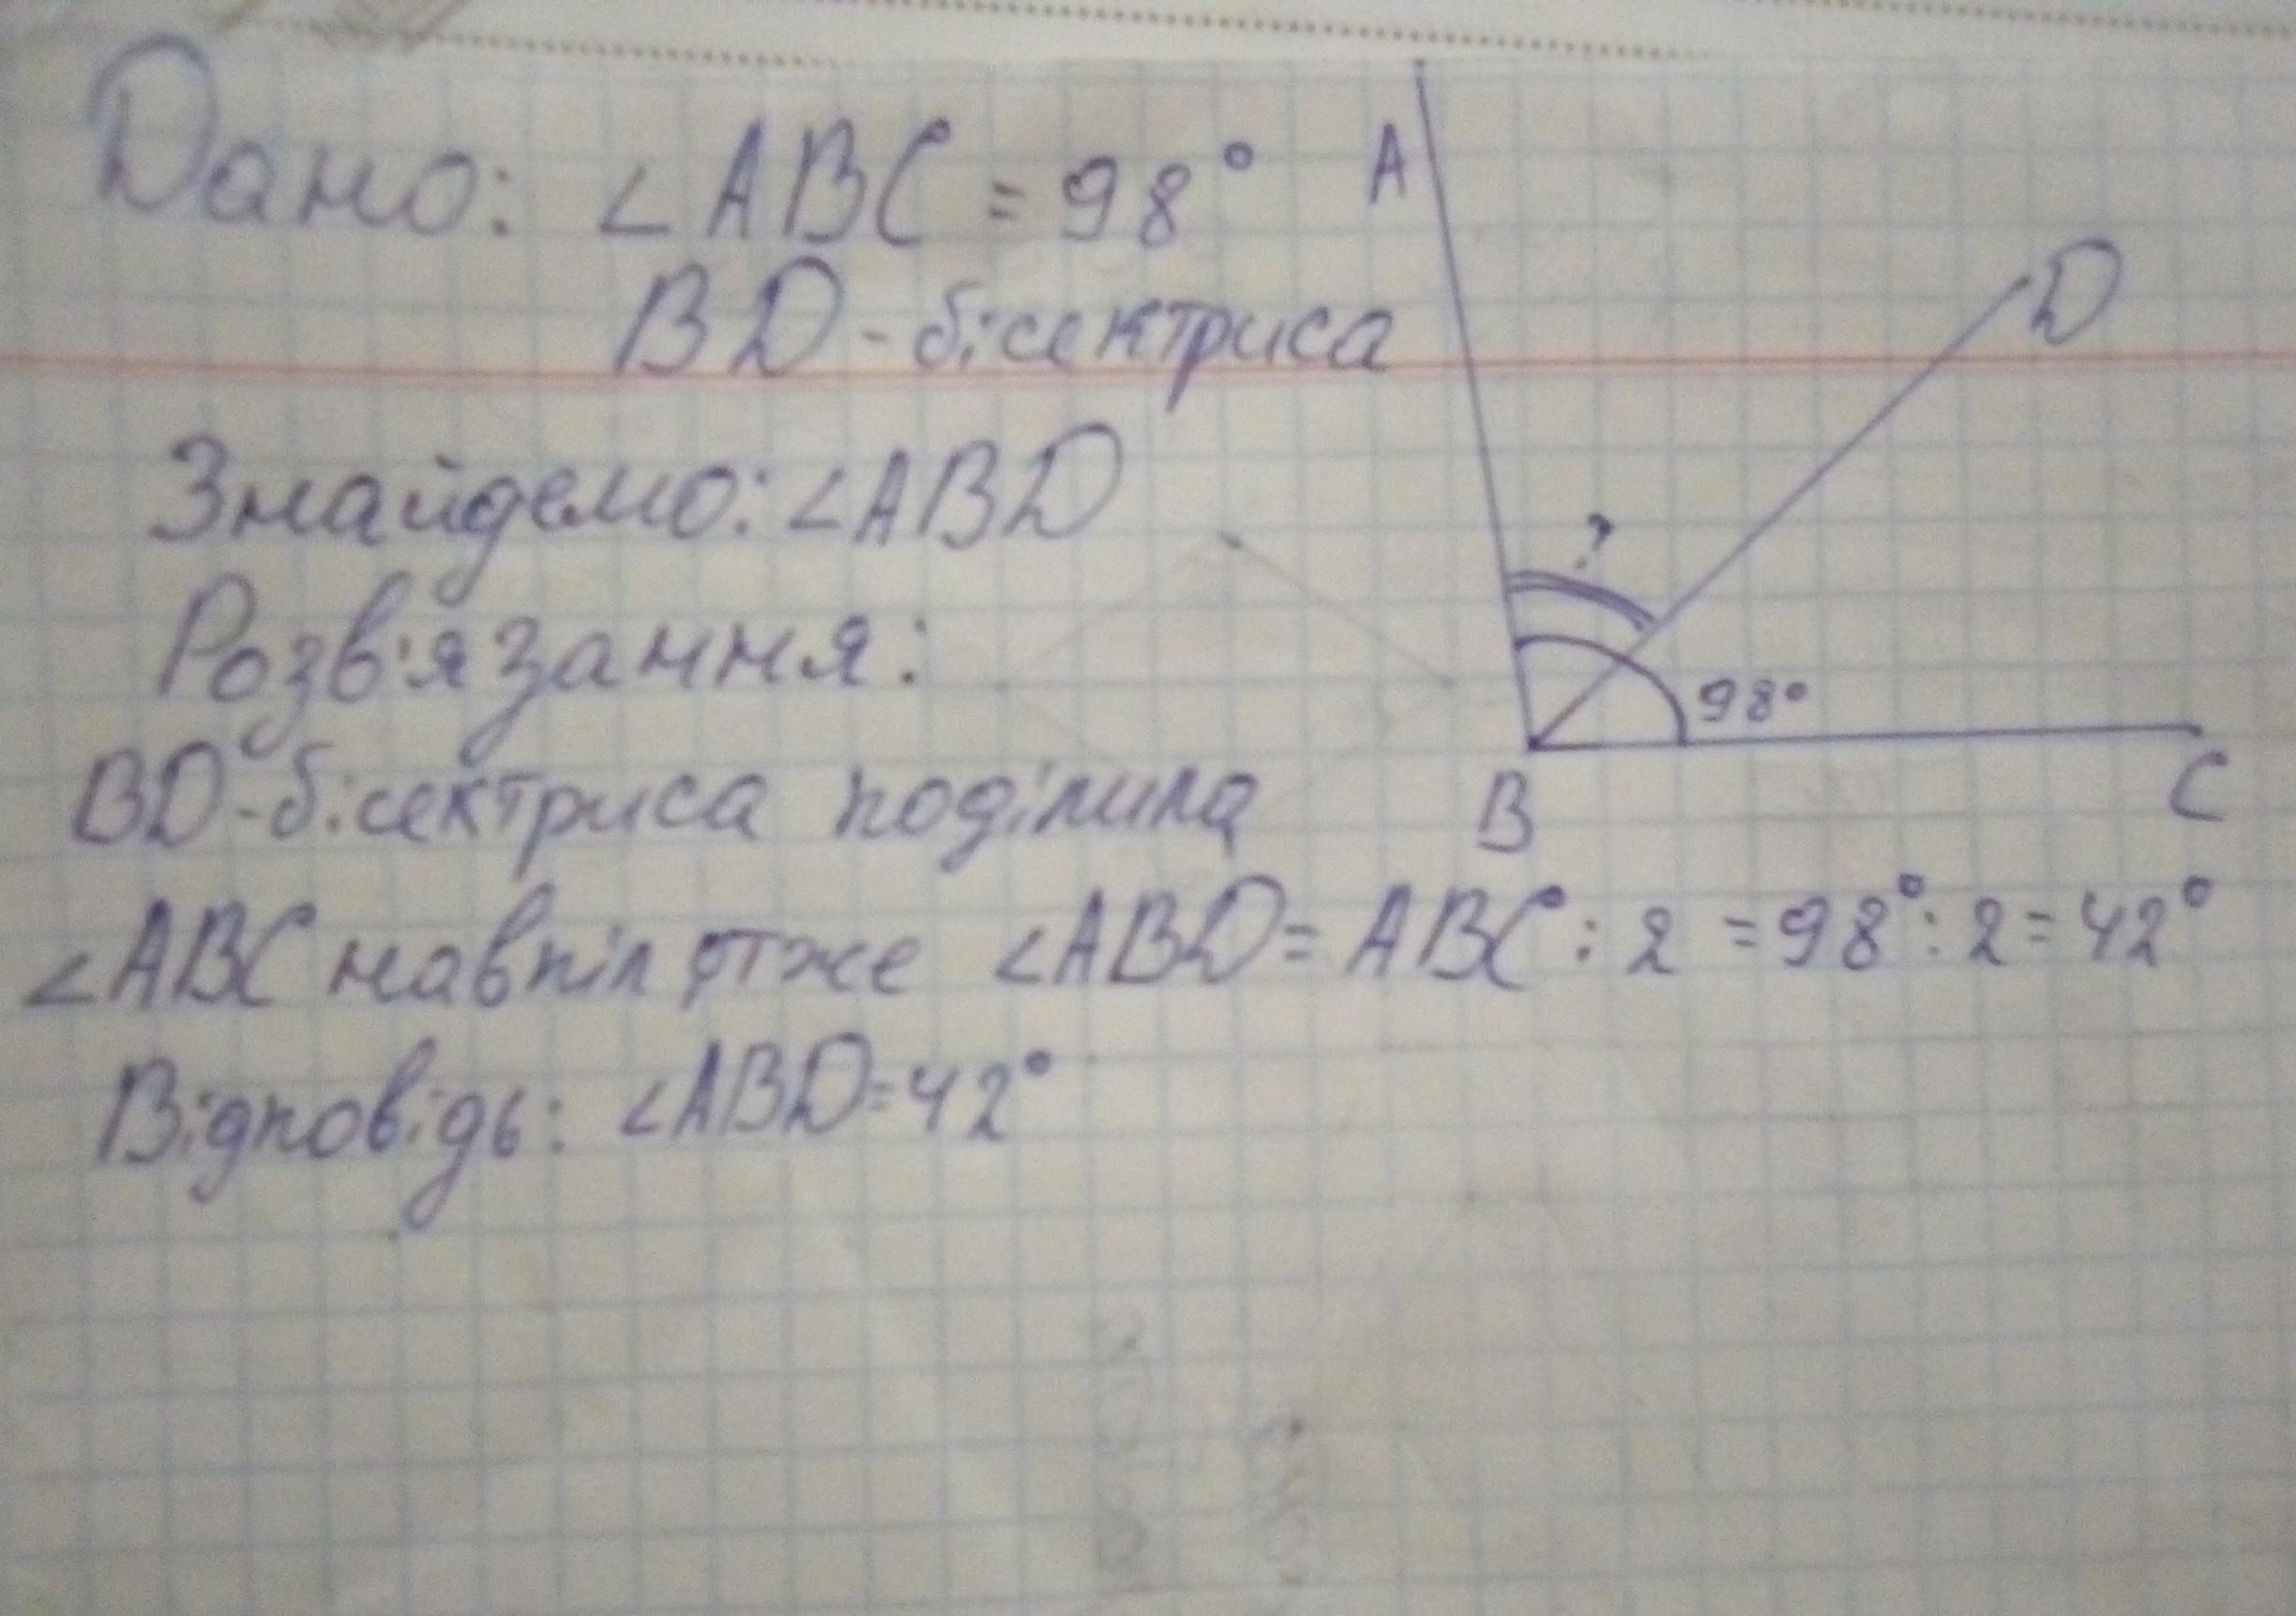 Дано: ∠ABC = 98°
BD - бісектриса
Знайдемо: ∠ABD
Розв'язання:
BD - бісектриса поділила
∠ABC навпіл отже ∠ABD = ABC : 2 = 98° : 2 = 42°
Відповідь: ∠ABD = 42°
A
D
?
98°
B
C